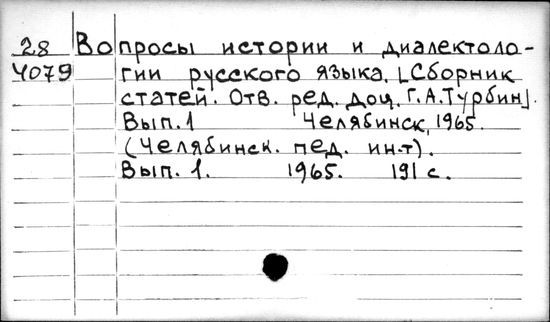 28 Вопросы истории и диалектоло-
4079 гии русского языка. [Сборник
статей. Отв. ред. доц. Г.А.Турбин].
Вып.1 Челябинск, 1965.
(Челябинск. пед. ин-т).
Вып. 1. 1965. 191 с.